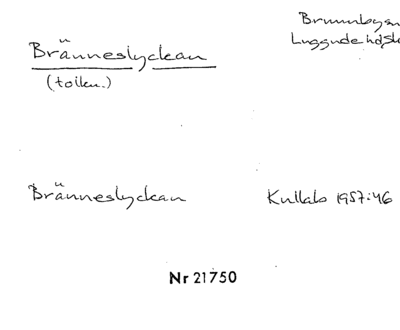 Bränneslyckan
(tolkn.)
Brunnbysn
Luggude hdsk
Bränneslyckan Kullab 1957:46
Nr 21750